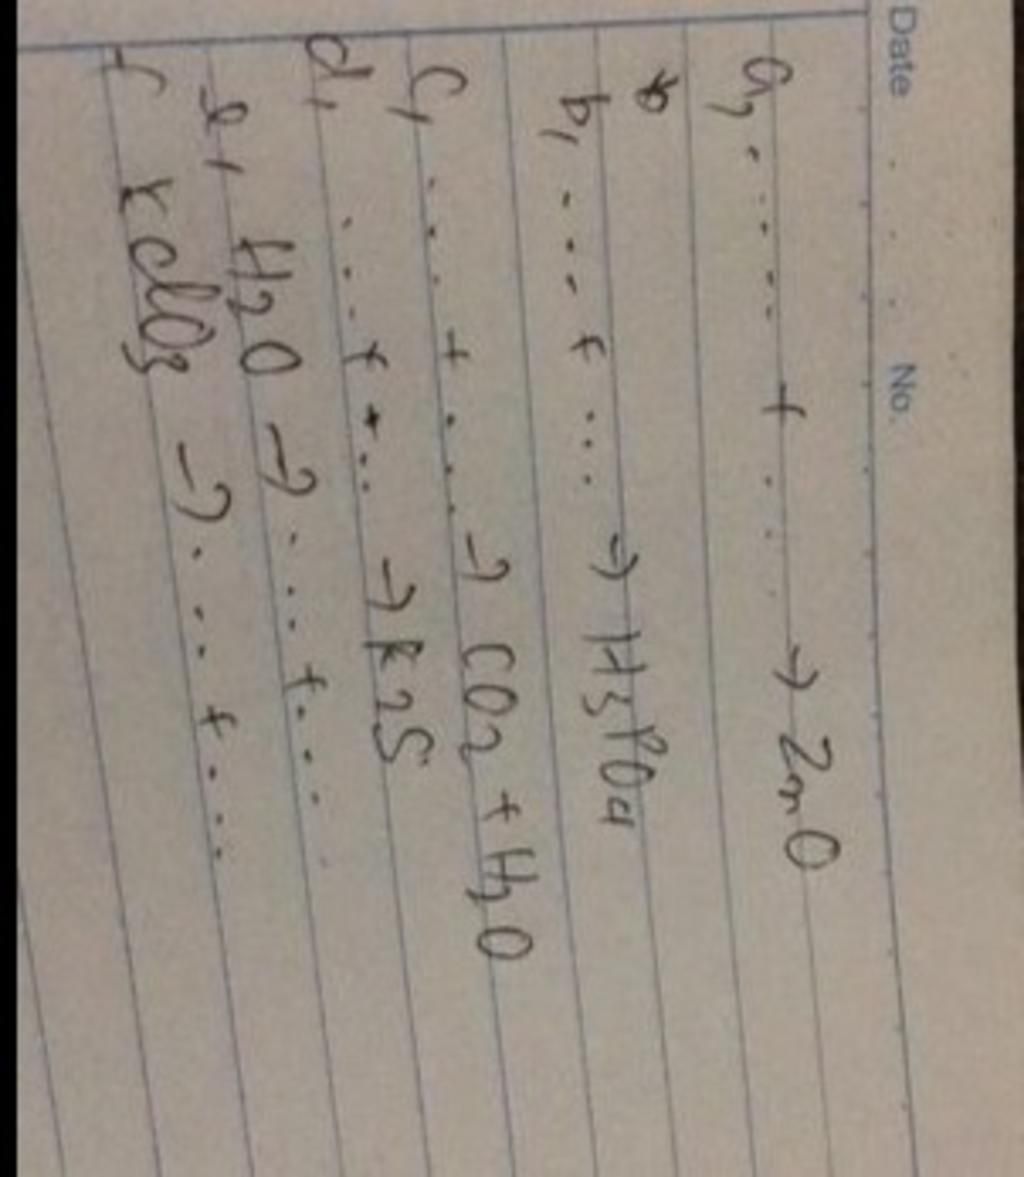 Date . . . No.
a, ...... + .... → ZnO
b, .... + .... → H3PO4
c, .... + .... → CO2 + H2O
d, .... + .... → K2S
e, H2O → .... + ....
f KClO3 → .... + ....